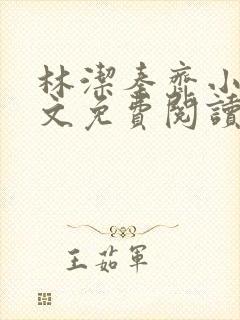 林潔秦齊小
文免費閱讀
王茹軍